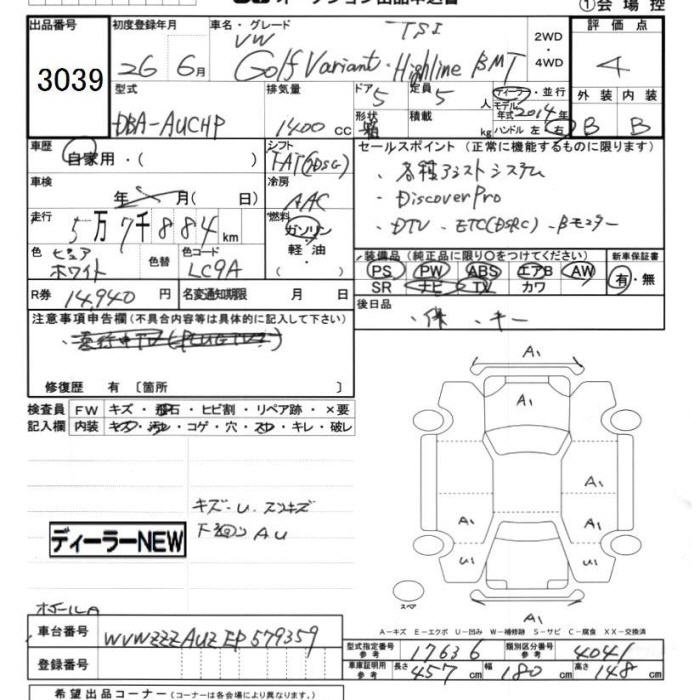 オークション出品申込書
①会場控
出品番号
3039
初度登録年月
26 6月
車名・グレード
VW TSI
Golf Variant・Highline BMT
2WD
・
4WD
評価点
4
型式
DBA-AUCHP
排気量
1400 cc
ドア
5
定員
5 人
形状
積載
kg
ディーラー・並行
モデル年式 2014年
ハンドル 左・右
外装 内装
B B
車歴
自家用・( )
シフト
FAT(DSG)
車検
年 月( 日)
冷房
AAC
走行
5万7千884km
燃料
ガソリン
軽・油
( )
色
ピュア
ホワイト
色替
色コード
LC9A
R券
14,940 円
名変通知期限 月 日
セールスポイント (正常に機能するものに限ります)
・各種アシストシステム
・DiscoverPro
・DTV ・ETC(DSRC) ・Bモニター
装備品 (純正品に限り○をつけてください)
新車保証書
PS PW ABS エアB AW
SR ナビ TV カワ
有・無
後日品
・保 ・キー
注意事項申告欄 (不具合内容等は具体的に記入して下さい)
修復歴 有 〔箇所 〕
検査員
記入欄
FW キズ・飛石・ヒビ割・リペア跡・×要
内装 キズ・汚れ・コゲ・穴・スレ・キレ・破レ
キズ・U スリキズ
下廻り AU
ディーラーNEW
A1
A1
A1
A1
A1
U1
U1
A1
スマ
A-キズ E-エクボ U-凹み W-補修跡 S-サビ C-腐食 XX-交換済
車台番号
WVWZZZAUZEP579359
登録番号
型式指定番号
17636
類別区分番号
4041
車庫証明用参考
長さ 457 幅 180 高さ 148
参考 cm cm cm
希望出品コーナー (コーナーは各会場により異なります。)